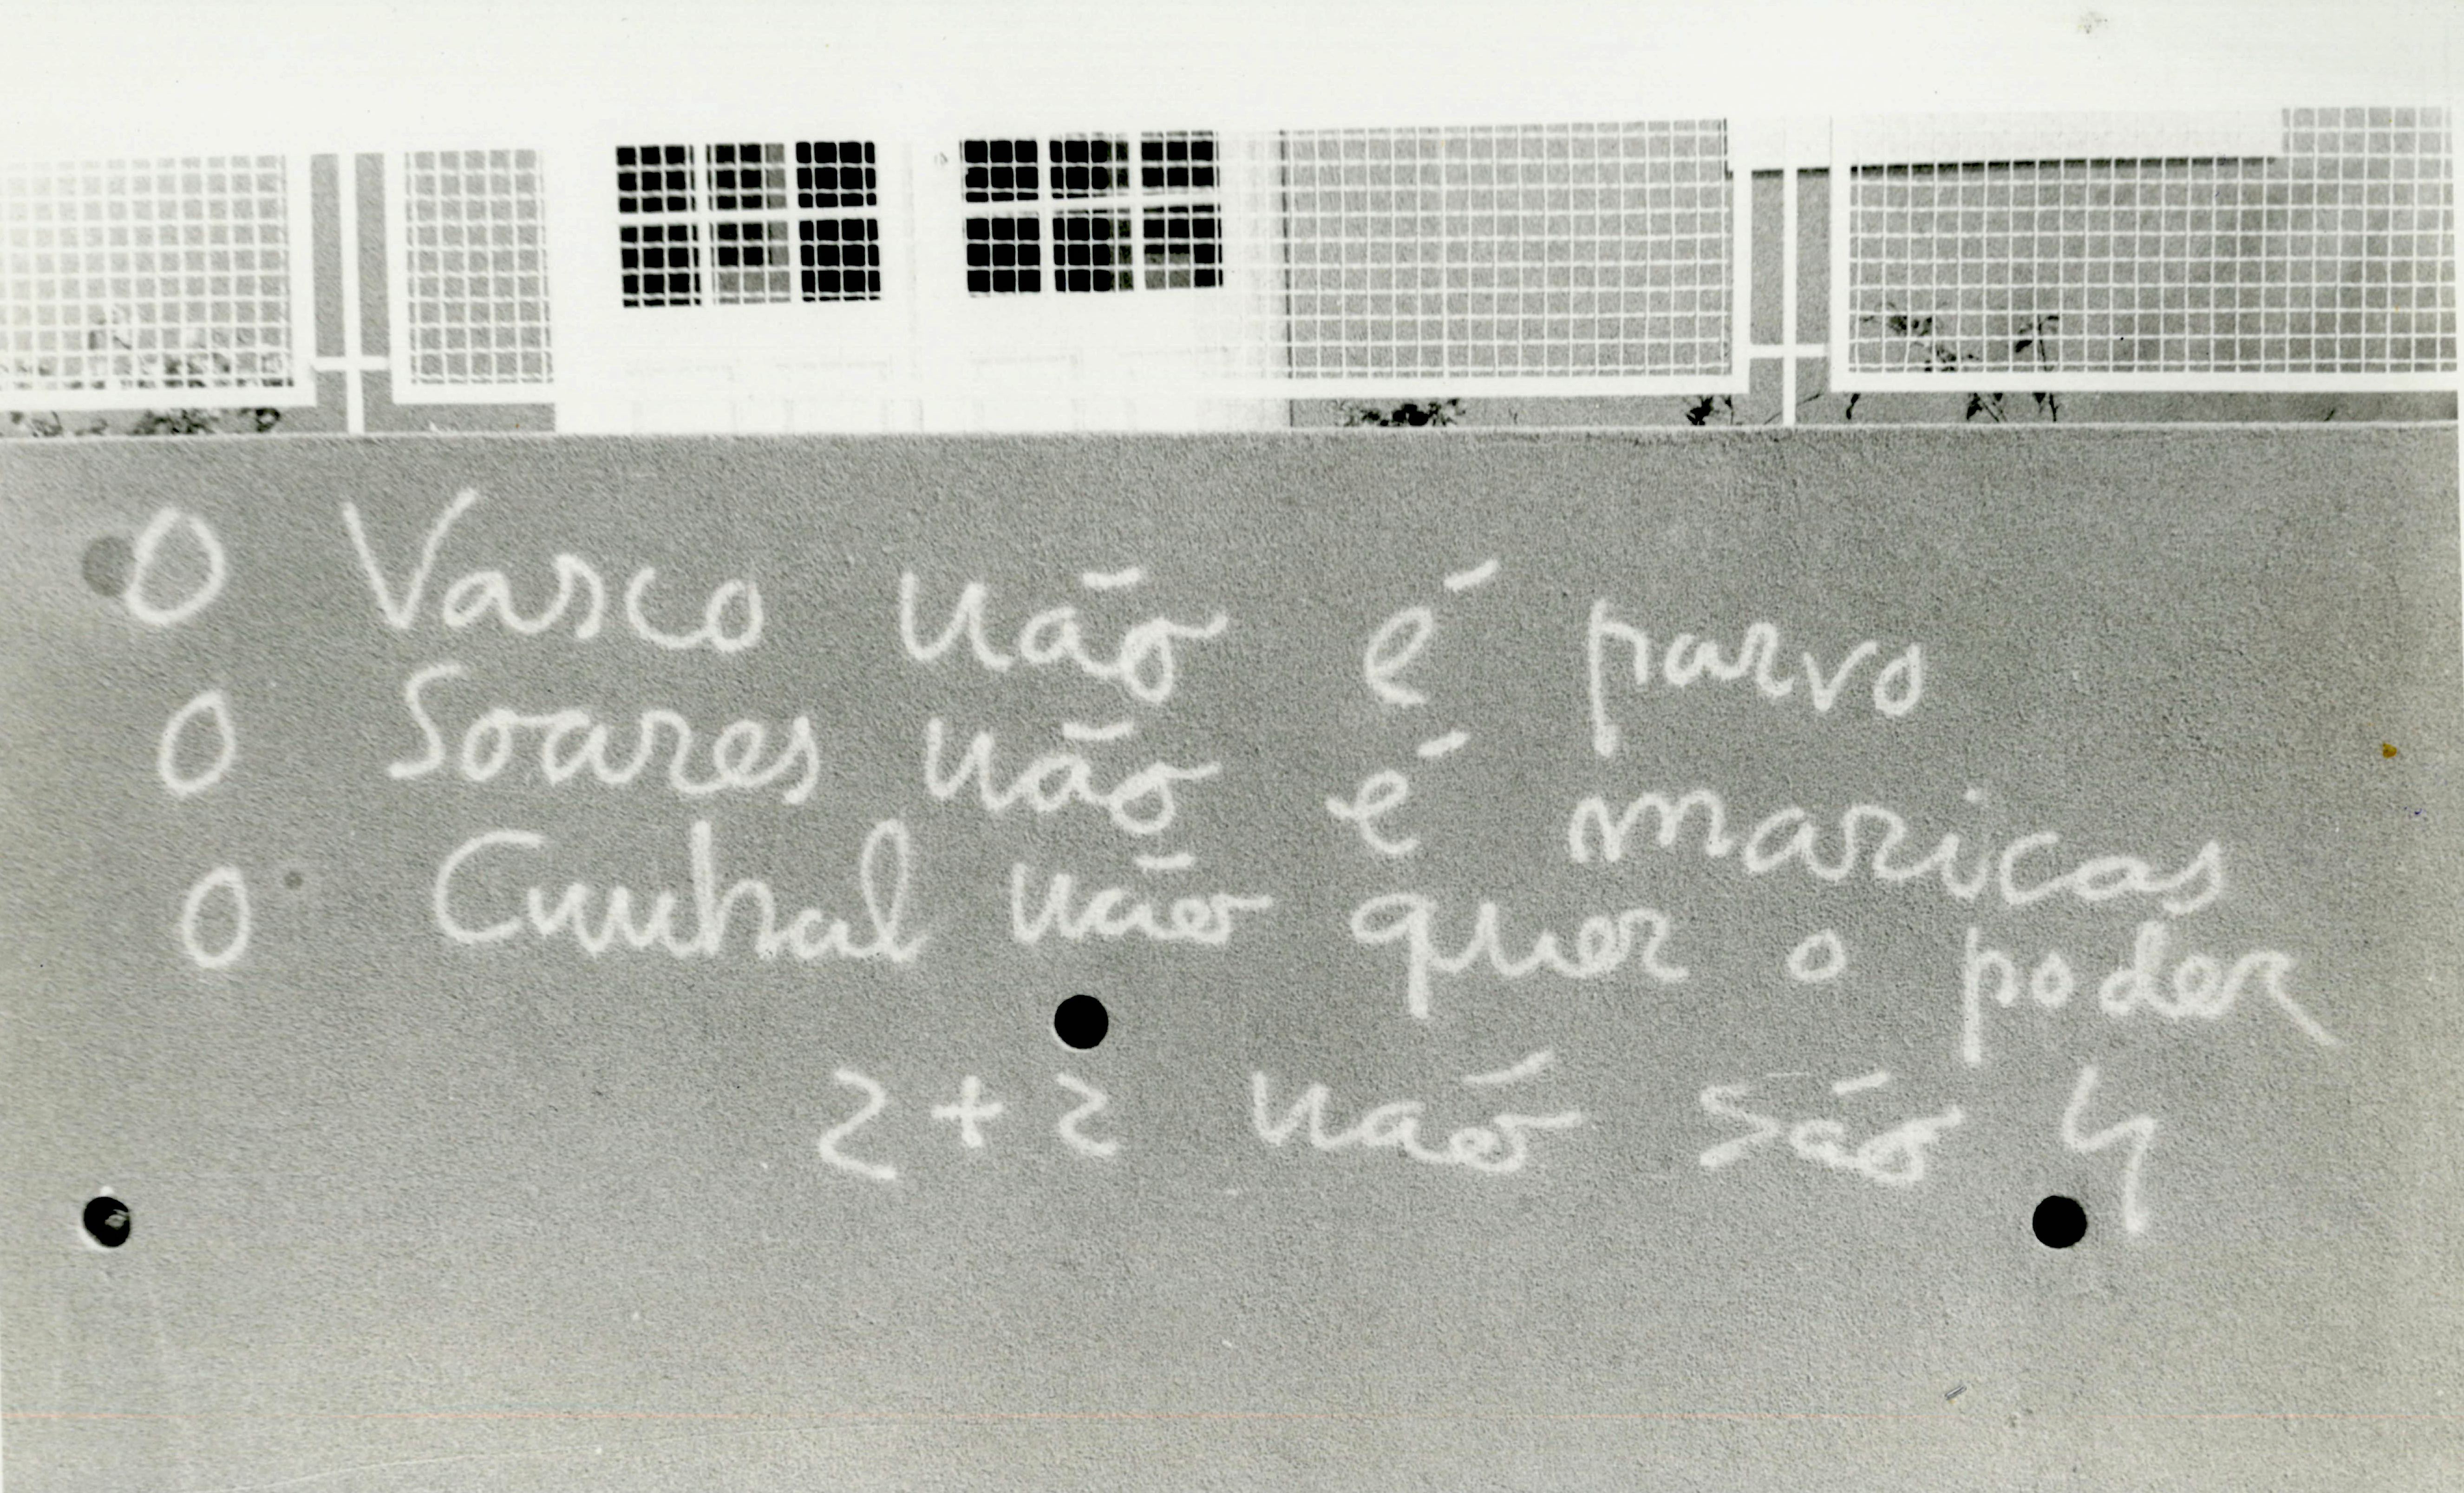 O Vasco não é parvo
O Soares não é maricas
O Cunhal não quer o poder
2+2 não são 4